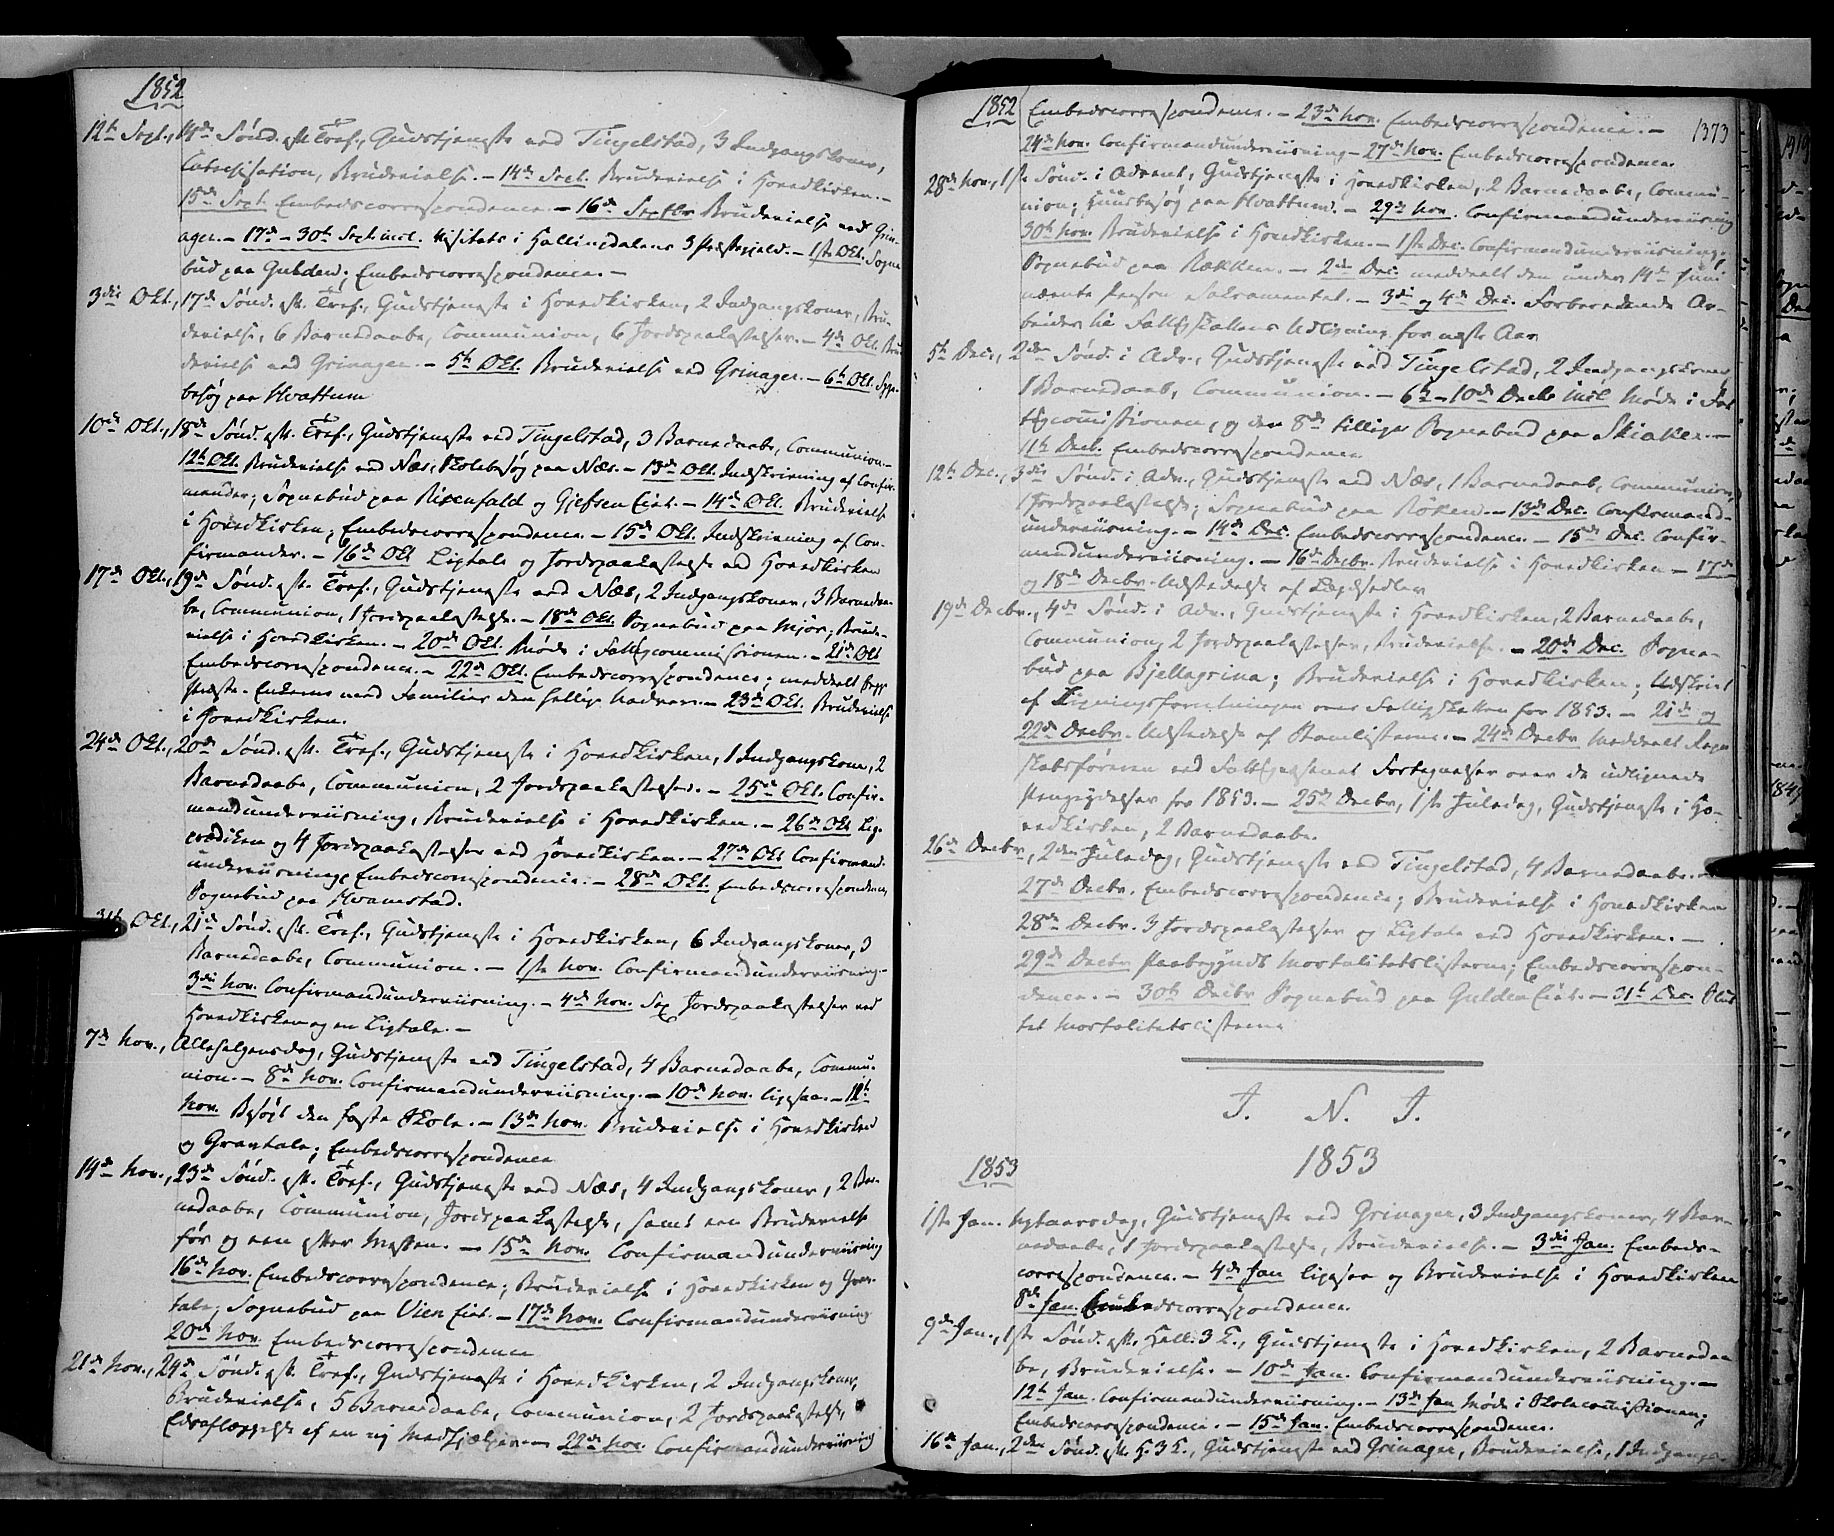 1852
12te Sept., 14de Sønd. eft. Tref., Gudstjeneste ved Tingelstad, 3 Indgangskoner,
Catechisation, Brudevielse. — 14de Sept. Brudevielse i Hovedkirken. —
15de Sept. Embedscorrespondence. — 16de Septbr Brudevielse ved Grin-
ager. — 17de — 30te Sept. incl. Visitats i Hallingdalens 3 Præstegjeld. — 1ste Okt. Sogne
bud paa Gulden; Embedscorrespondence. —
3die Okt., 17de Sønd. eft. Tref., Gudstjeneste i Hovedkirken, 2 Indgangskoner, Bru-
devielse, 6 Barnedaabe, Communion, 6 Jordspaakastelser. — 4de Okt. Bru
devielse ved Grinager. — 5te Okt. Brudevielse ved Grinager. — 6te Okt. Syge-
besøg paa Hvattum
10de Okt., 18de Sønd. eft. Tref., Gudstjeneste ved Tingelstad, 3 Barnedaabe, Communion. —
12te Okt. Brudevielse ved Næs, Skolebesøg paa Næs. — 13de Okt. Indskrivning af Confir-
mander; Sognebud paa Risenfald og Gjefsen Eiet. — 14de Okt. Brudevielse
i Hovedkirken; Embedscorrespondence. — 15de Okt. Indskrivning af Con-
firmander. — 16de Okt Ligtale og Jordspaakastelse ved Hovedkirken
17de Okt., 19de Sønd. eft. Tref., Gudstjeneste ved Næs, 2 Indgangskoner, 3 Barnedaa-
be, Communion, 1 Jordspaakastelse. — 18de Okt. Sognebud paa Mjør; Brude-
vielse i Hovedkirken. — 20de Okt. Møde i Fattigcommissionen. — 21de Okt
Embedscorrespondence. — 22de Okt. Embedscorrespondence; meddeelt
Præste-Enkerne med Familier den hellige Nadvere. — 23de Okt. Brudevielse
i Hovedkirken.
24de Okt., 20de Sønd. eft. Tref., Gudstjeneste i Hovedkirken, 1 Indgangskone, 2
Barnedaabe, Communion, 2 Jordspaakastelser. — 25de Okt. Confir-
mandunderviisning, Brudevielse i Hovedkirken. — 26de Okt Lig-
prædiken og 4 Jordspaakastelser ved Hovedkirken. — 27de Okt Confirmand-
underviisning, Embedscorrespondence. — 28de Okt. Embedscorrespondence,
Sognebud paa Hvamstad.
31te Okt., 21de Sønd. eft. Tref., Gudstjeneste i Hovedkirken, 6 Indgangskoner, 3
Barnedaabe, Communion. — 1ste Nov. Confirmandunderviisning. —
3die Nov. Confirmandunderviisning. — 4de Nov. Sex Jordspaakastelser ved
Hovedkirken og en Ligtale. —
7de Nov., Allehelgensdag, Gudstjeneste ved Tingelstad, 4 Barnedaabe, Commu-
nion. — 8de Nov. Confirmandunderviisning. — 10de Nov. ligesaa. — 12te
Nov. Besøgt den faste Skole. — 13de Nov. Brudevielse i Hovedkirken
og Gravtale; Embedscorrespondence
14de Nov., 23de Sønd. eft. Tref., Gudstjeneste ved Næs, 4 Indgangskoner, 2 Bar-
nedaabe, Communion, Jordspaakastelse, samt een Brudevielse
før og een efter Messen. — 15de Nov. Confirmandunderviisning
16de Nov. Embedscorrespondence; Brudevielse i Hovedkirken og Grav-
tale; Sognebud paa Vien Eiet. — 17de Nov. Confirmandunderviisning
20de Nov. Embedscorrespondence
21de Nov., 24de Sønd. eft. Tref., Gudstjeneste i Hovedkirken, 2 Indgangskoner,
Brudevielse, 5 Barnedaabe, Communion, 2 Jordspaakastelser,
Edsaflæggelse af en ny Medhjælper. — 22de Nov. Confirmandunderviisning
1852 Embedscorrespondence. — 23de Nov. Embedscorrespondence. —
1373
24de Nov. Confirmandunderviisning — 27de Nov. Embedscorrespondence.
28de Nov., 1ste Sønd. i Advent, Gudstjeneste i Hovedkirken, 2 Barnedaabe, Commu-
nion; Huusbesøg paa Hvattum. — 29de Nov. Confirmandunderviisning
30te Nov. Brudevielse i Hovedkirken. — 1ste Dec. Confirmandunderviisning;
Sognebud paa Rækken. — 2den Dec. meddeelt den under 14de Juni
nævnte Person Sakramentet. — 3die og 4de Dec. Forberedende Ar-
beider til Fattigskattens Udligning for næste Aar
5te Dec., 2den Sønd. i Adv., Gudstjeneste ved Tingelstad, 2 Indgangskoner,
1 Barnedaab, Communion. — 6te — 10de Decbr incl Møde i Fat
tigcommissionen, og den 8de tillige Sognebud paa Skiaker. —
11te Decb. Embedscorrespondence
12te Dec., 3die Sønd. i Adv., Gudstjeneste ved Næs, 1 Barnedaab, Communion,
1 Jordspaakastelse; Sognebud paa Røken. — 13de Dec. Confirmand-
underviisning. — 14de Dec. Embedscorrespondence. — 15de Dec. Confir-
mandunderviisning. — 16de Decbr. Brudevielse i Hovedkirken — 17de
og 18de Decbr. Udstedelse af Lægdsedler
19de Decbr., 4de Sønd. i Adv., Gudstjeneste i Hovedkirken, 2 Barnedaabe,
Communion, 2 Jordspaakastelser, Brudevielse. — 20de Dec. Sogne-
bud paa Bjellagrina; Brudevielse i Hovedkirken; Udskrivt
af Ligningsforretningen over Fattigskatten for 1853. — 21de og
22de Decbr. Udstedelse af Ramlisterne. — 24de Decbr Meddeelt Regn
skabsføreren ved Fattigvæsenet Fortegnelser over de udlignede
Pengeydelser for 1853. — 25de Decbr, 1ste Juledag, Gudstjeneste i Ho-
vedkirken, 2 Barnedaabe.
26de Decbr, 2den Juledag, Gudstjeneste ved Tingelstad, 4 Barnedaabe. —
27de Decbr. Embedscorrespondence; Brudevielse i Hovedkirken
28de Decbr. 3 Jordspaakastelser og Ligtale ved Hovedkirken. —
29de Decbr Paabegyndt Mortalitetslisterne; Embedscorrespon-
dence. — 30te Decbr Sognebud paa Gulden Eiet. — 31te Dec. Slut
tet Mortalitetslisterne
J. N. J.
1853
1853
1ste Jan. Nytaarsdag, Gudstjeneste ved Grinager, 3 Indgangskoner, 4 Bar-
nedaabe, 1 Jordspaakastelse, Brudevielse. — 3die Jan. Embeds-
correspondence. — 4de Jan ligesaa og Brudevielse i Hovedkirken
8de Jan. Embedscorrespondence.
9de Jan., 1ste Sønd. eft. Hell. 3 K., Gudstjeneste i Hovedkirken, 2 Barnedaa
be, Brudevielse. — 10de Jan. Confirmandunderviisning. —
12te Jan. Confirmandunderviisning. — 13de Jan Møde i Skolecommissionen;
Embedscorrespondence. — 15de Jan. Embedscorrespondence.
16de Jan., 2den Sønd. eft. H. 3 K., Gudstjeneste ved Grinager, Brudevielse, 1 Indgangs-